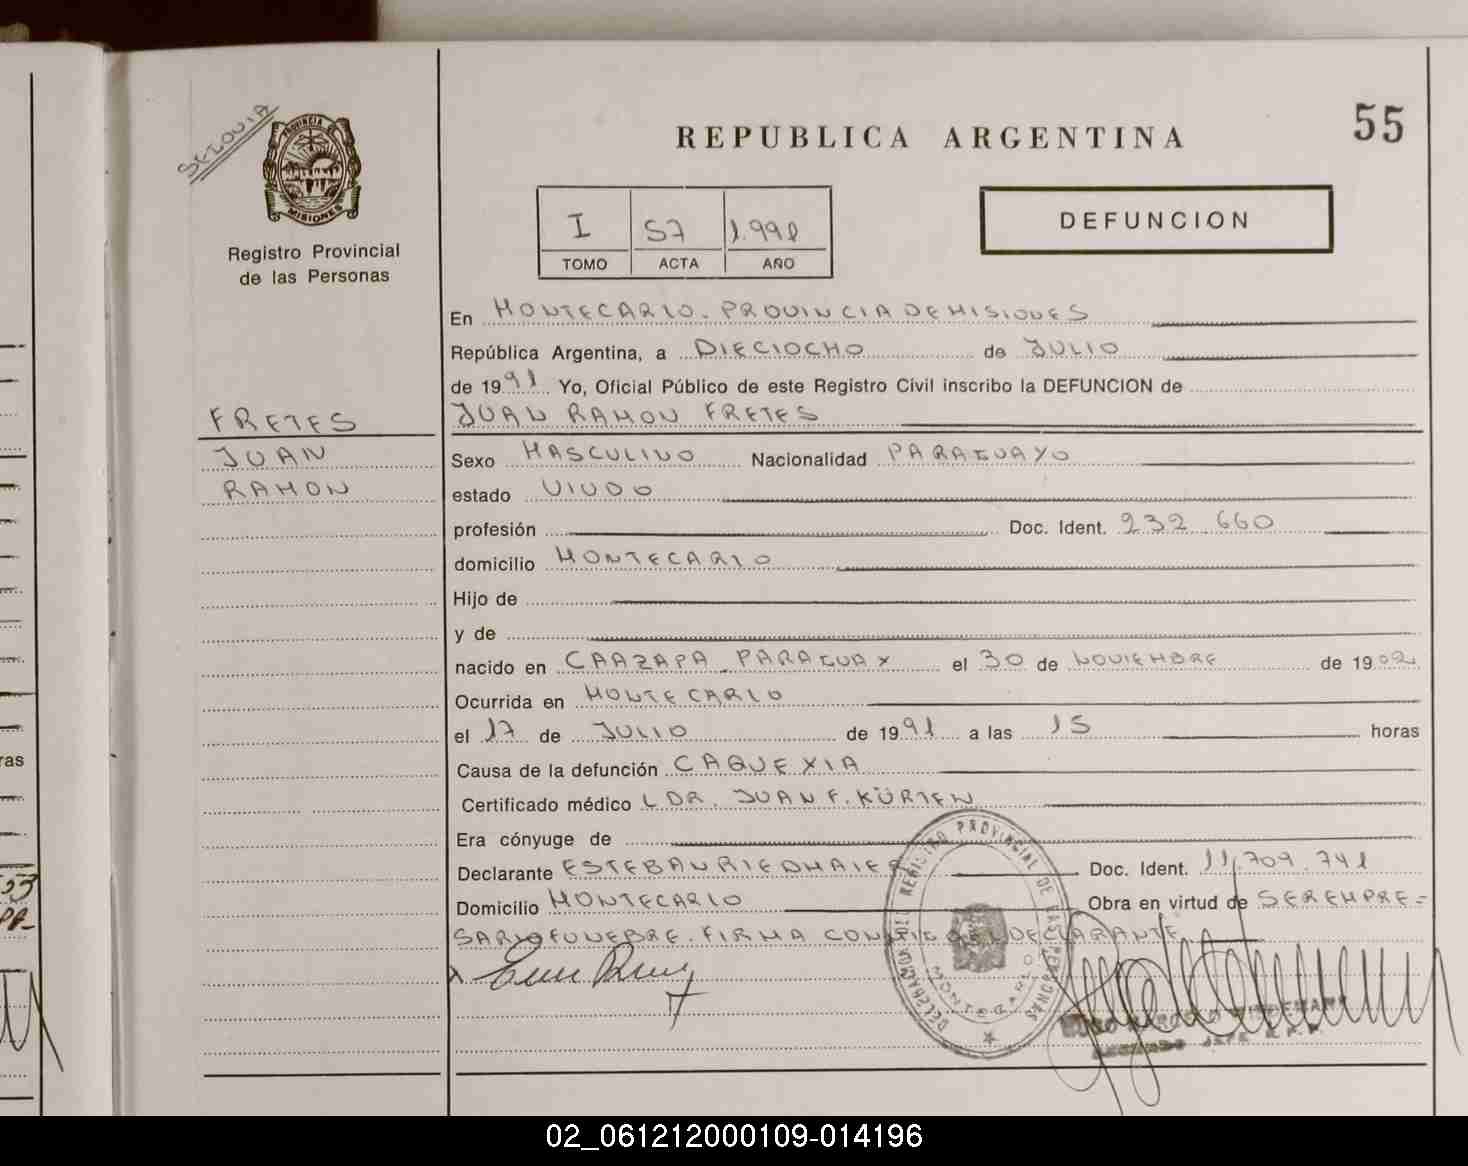 55
REPUBLICA ARGENTINA
PROVINCIA DE
MISIONES
Registro Provincial
de las Personas
I 57 1.991
TOMO ACTA AÑO
DEFUNCION
En MONTECARLO. PROVINCIA DE MISIONES
República Argentina, a DIECIOCHO de JULIO
de 1991 Yo, Oficial Público de este Registro Civil inscribo la DEFUNCION de
JUAN RAMON FRETES
FRETES
JUAN
RAMON
Sexo MASCULINO Nacionalidad PARAGUAYO
estado VIUDO
profesión Doc. Ident. 232.660
domicilio MONTECARLO
Hijo de
y de
nacido en CAAZAPA PARAGUAY el 30 de NOVIEMBRE de 1902
Ocurrida en MONTECARLO
el 17 de JULIO de 1991 a las 15 horas
Causa de la defunción CAQUEXIA
Certificado médico L DR. JUAN F. KÜRTEN
Era cónyuge de
Declarante ESTEBAN RIEDMAIER Doc. Ident. 11.709.741
Domicilio MONTECARLO Obra en virtud de SER EMPRE=
SARIO FUNEBRE. FIRMA CONMIGO EL DECLARANTE
REGISTRO PROVINCIAL DE LAS PERSONAS
MONTECARLO
ras
02_061212000109-014196